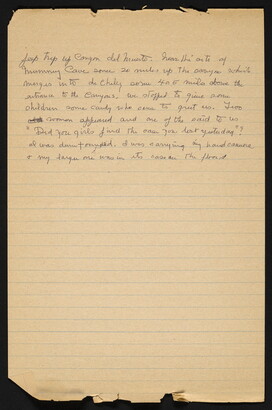 Jeep trip up Canyon del Muerto. Near the site of
Mummy Cave some 20 miles up the canyon which
merges into de Chelly some 4 or 5 miles above the
entrance to the Canyons, we stopped to give some
children some candy who came to greet us. Two
women appeared and one of the said to us
"Did you girls find the one you lost yesterday"?
I was dumbfounded. I was carrying my hand camera
& my larger one was in its case on the floor